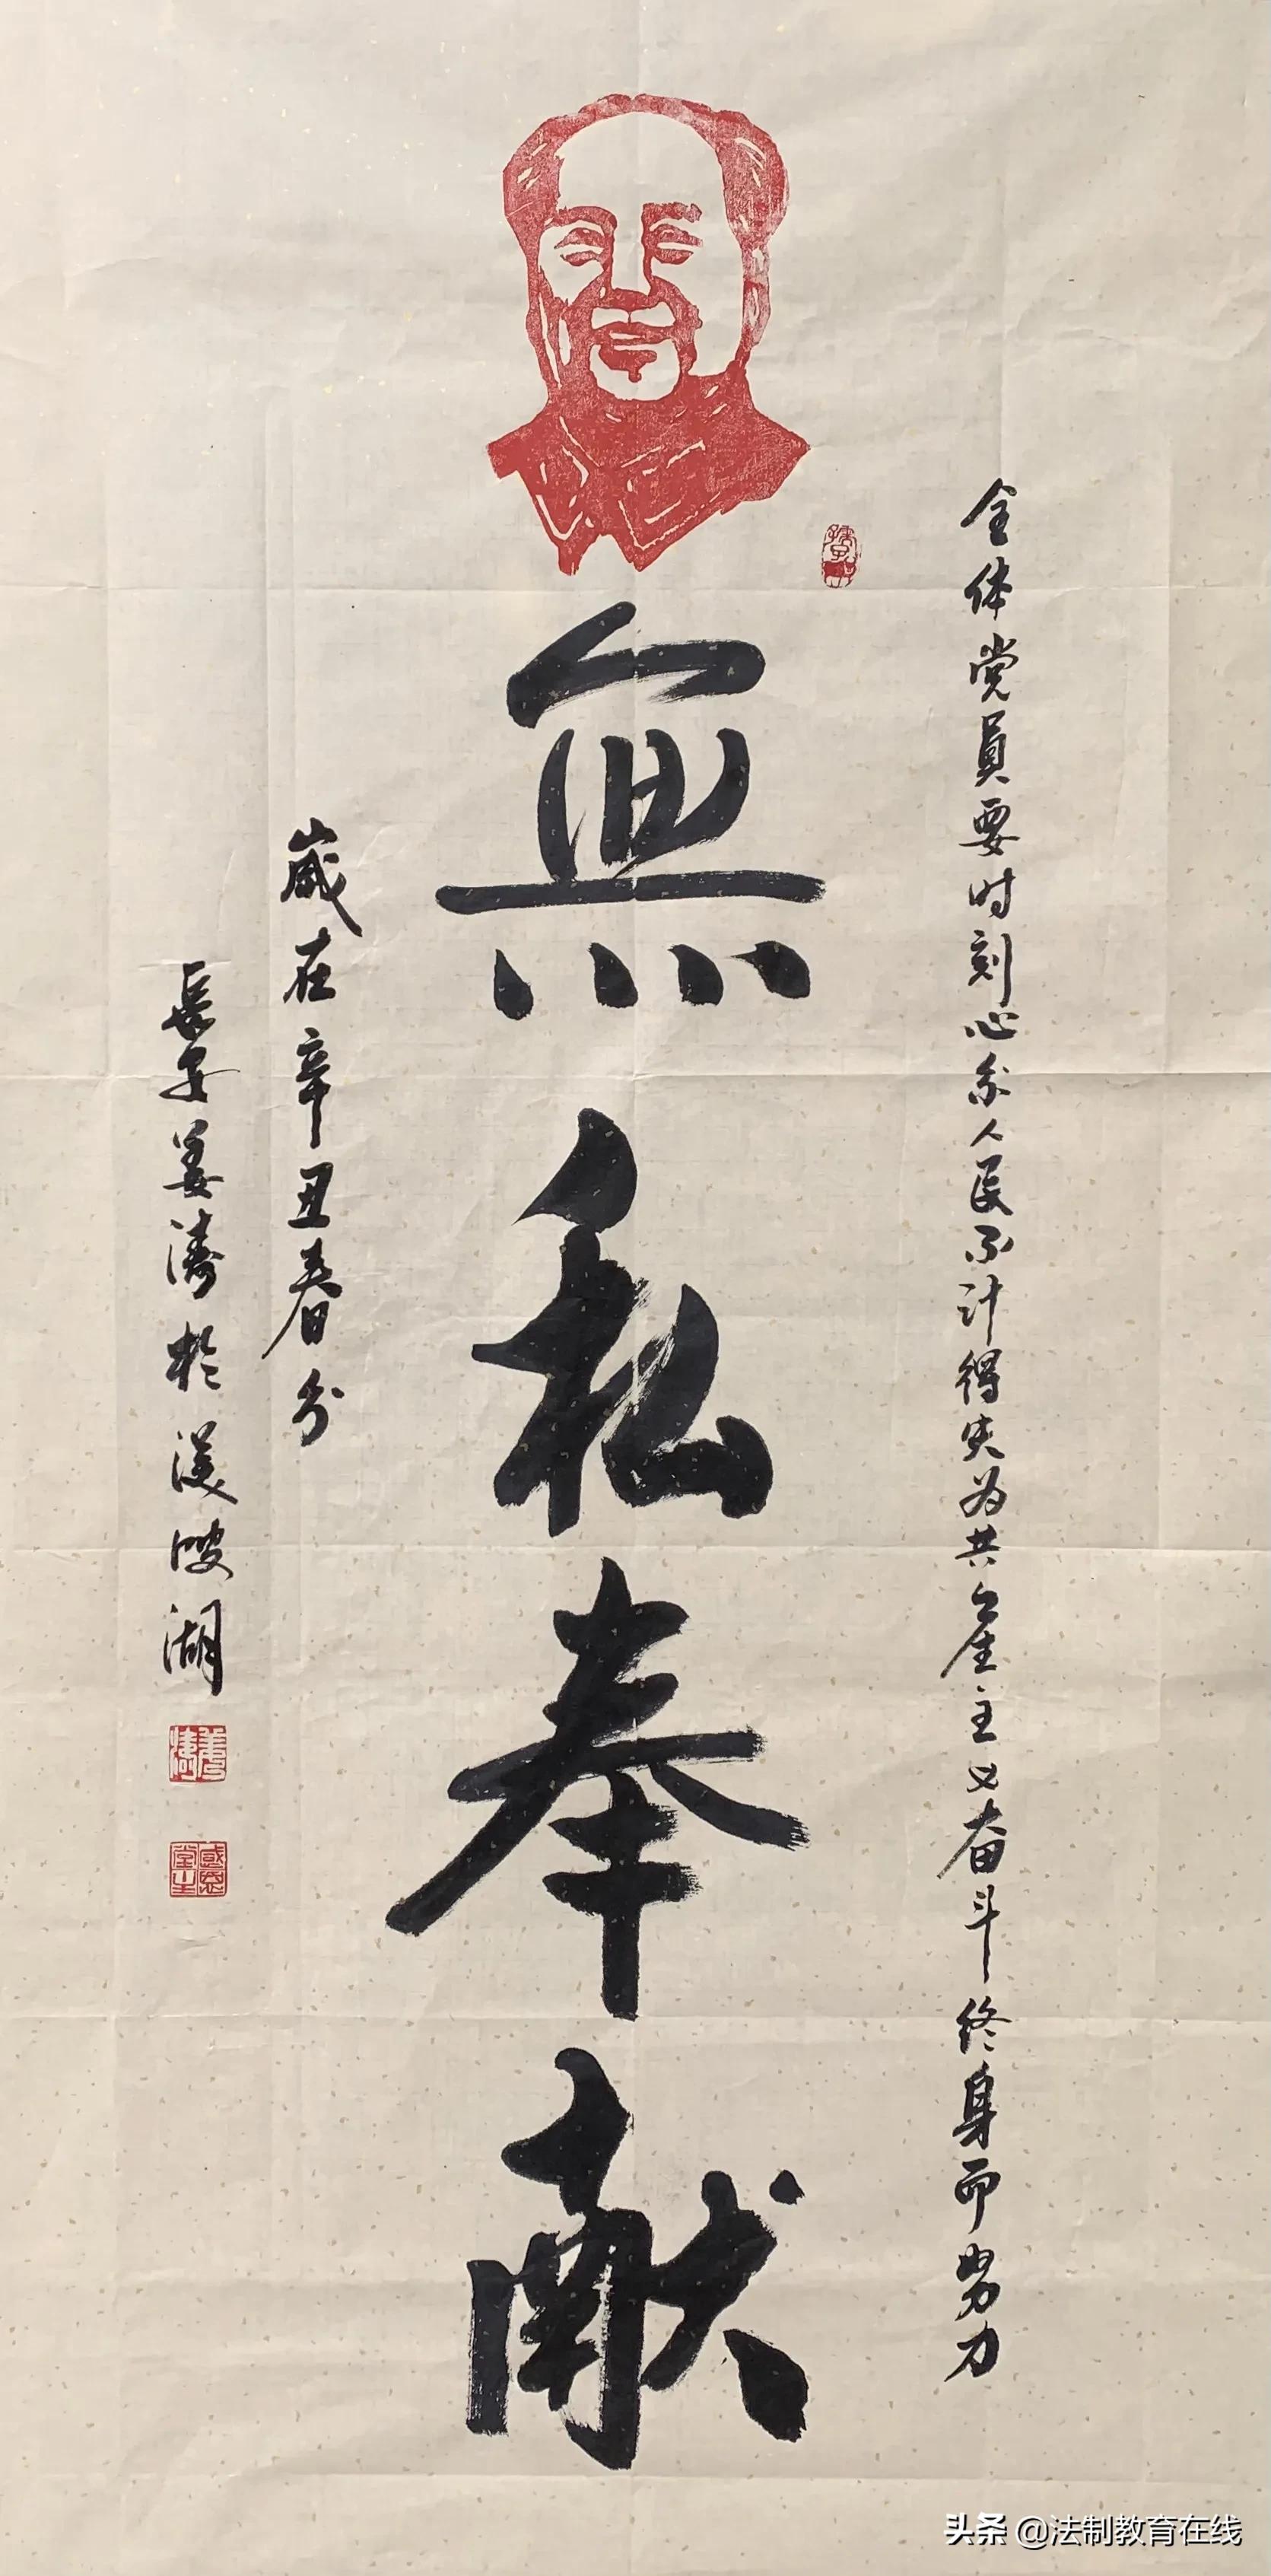 全体党員要时刻心系人民不计得失为共產主义奋斗终身而努力
無私奉献
嵗在辛丑春分
長安姜涛於渼陂湖
姜濤
感恩堂主
头条 @法制教育在线